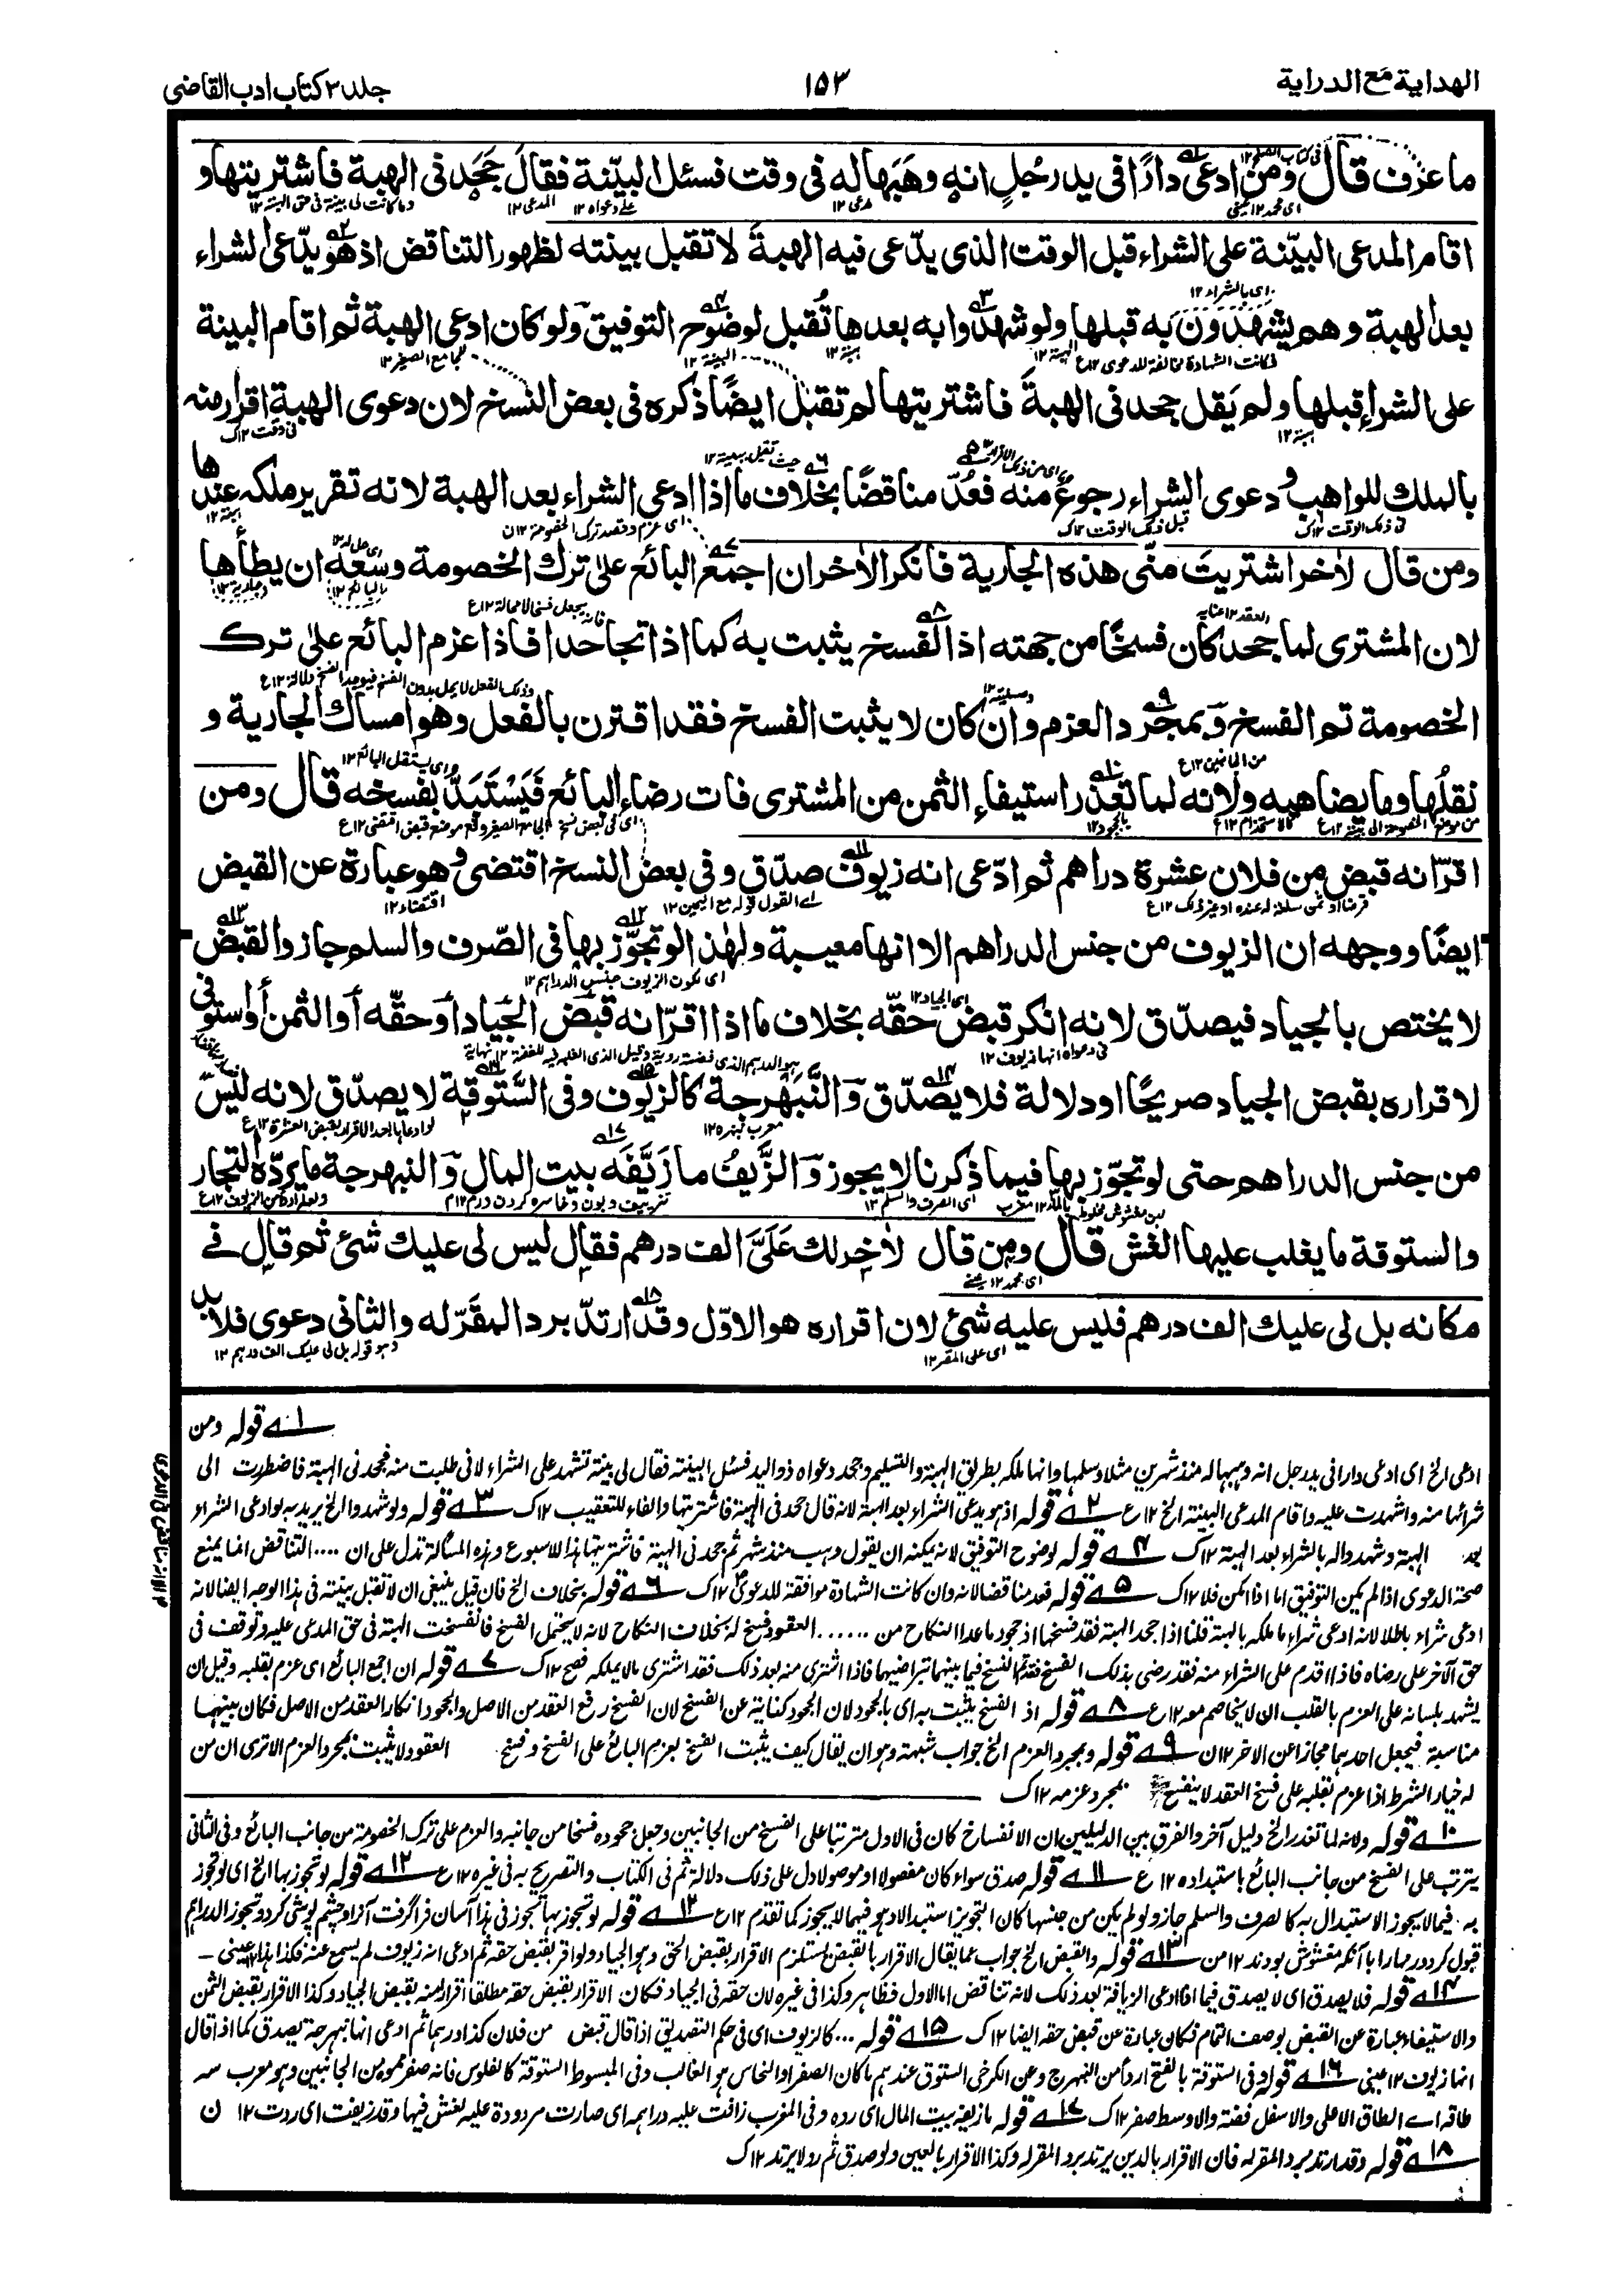 الهداية مع الدراية
١٥٣
جلد ٣ كتاب ادب القاضى
ما عرف قال ومن ادعى دارا فى يد رجل انه وهبها له فى وقت فسئل البيّنة فقال جحد فى الهبة فاشتريتها و
اقام المدعى البيّنة على الشراء قبل الوقت الذى يدّعى فيه الهبة لا تقبل بينته لظهور التناقض اذ هو يدّعى الشراء
بعد الهبة وهم يشهدون به قبلها ولو شهدوا به بعدها تُقبل لوضوح التوفيق ولو كان ادعى الهبة ثم اقام البينة
على الشراء قبلها ولم يَقل جحد فى الهبةَ فاشتريتها لم تقبل ايضًا ذكره فى بعض النسخ لان دعوى الهبة اقرار منه
بالملك للواهب ودعوى الشراء رجوع منه فعُدّ مناقضًا بخلاف ما اذا ادعى الشراء بعد الهبة لانه تقرير ملكه عندها
ومن قال لاٰخر اشتريتَ منّى هذه الجارية فانكر الاٰخر ان اجمع البائع علىٰ ترك الخصومة وسعه ان يطأها
لان المشترى لما جحد كان فسخًا من جهته اذ الفسخ يثبت به كما اذا تجاحدا فاذا عزم البائع علىٰ ترك
الخصومة تم الفسخ وبمجرد العزم وان كان لا يثبت الفسخ فقد اقترن بالفعل وهو امساك الجارية و
نقلُها وما يضاهيه ولانه لما تعذر استيفاء الثمن من المشترى فات رضاء البائع فَيَسْتَبَدّ بفسخه قال ومن
اقرّ انه قبض من فلان عشرة دراهم ثم ادّعى انه زيوف صدّق وفى بعض النسخ اقتضى وهو عبارة عن القبض
ايضًا ووجهه ان الزيوف من جنس الدراهم الا انها معيبة ولهٰذا لو تجوّز بها فى الصّرف والسلم جاز والقبض
لا يختص بالجياد فيصدّق لانه انكر قبض حقّه بخلاف ما اذا اقرّ انه قبض الجياد أو حقّه أو الثمن أو استوفى
لاقراره بقبض الجياد صريحًا او دلالة فلا يصدّق وَالنَّبَهْرجة كالزيوف وفى السَّتوقة لا يصدّق لانه ليس
من جنس الدراهم حتى لو تجوّز بها فيما ذكرنا لا يجوز وَالزَّيفُ ما زَيَّفَه بيت المال وَالنبهرجة ما يردّه التجار
والستوقة ما يغلب عليها الغش قال ومن قال لاٰخر لك عَلَىَّ الف درهم فقال ليس لى عليك شئ ثم قال فى
مكانه بل لى عليك الف درهم فليس عليه شئ لان اقراره هو الاوّل وقد ارتدّ برد المقَرّ له والثانى دعوى فلابد
١ قوله ومن
ادعى الخ اى ادعى دارا فى يد رجل انه وهبها له منذ شهرين مثلا وسلمها وانها ملكه بطريق الهبة والتسليم وجحد دعواه ذو اليد فسئل البينة فقال لى بينة تشهد على الشراء لانى طلبت منه فجحدنى الهبة فاضطررت الى
شرائها منه واشهدت عليه واقام المدعى البينة الخ ١٢ ع ٢ قوله اذ هو يدعى الشراء بعد الهبة لانه قال جحدنى الهبة فاشتريتها والفاء للتعقيب ١٢ ك ٣ قوله ولو شهدوا الخ يريد به لو ادعى الشراء
بعد الهبة وشهدوا له بالشراء بعد الهبة ١٢ ك ٤ قوله لوضوح التوفيق لانه يمكنه ان يقول وهب منذ شهر ثم جحدنى الهبة فاشتريتها هذا الاسبوع وهذه المسألة تدل على ان .... التناقض انما يمنع
صحة الدعوى اذا لم يمكن التوفيق اما اذا امكن فلا ١٢ ك ٥ قوله فعد مناقضا لانه وان كانت الشهادة موافقة للدعوى ١٢ ك ٦ قوله بخلاف الخ فان قيل ينبغى ان لا تقبل بينته فى هذا الوجه ايضا لانه
ادعى شراء باطلا لانه ادعى شراء ما ملكه بالهبة قلنا اذا جحد الهبة فقد فسخها اذ جحود ما عدا النكاح من ...... العقود فسخ له بخلاف النكاح لانه لا يحتمل الفسخ فانفسخت الهبة فى حق المدعى عليه وتوقف فى
حق الآخر على رضاه فاذا اقدم على الشراء منه فقد رضى بذلك الفسخ فقد تم الفسخ فيما بينهما بتراضيهما فاذا اشترى منه بعد ذلك فقد اشترى مالا يملكه فصح ١٢ ك ٧ قوله ان اجمع البائع اى عزم بقلبه وقيل ان
يشهد بلسانه على العزم بالقلب ان لا يخاصم معه ١٢ ع ٨ قوله اذ الفسخ يثبت به اى بالجحود لان الجحود كناية عن الفسخ لان الفسخ رفع العقد من الاصل والجحود انكار العقد من الاصل فكان بينهما
مناسبة فيجعل احدهما مجازا عن الاخر ١٢ ن ٩ قوله وبمجرد العزم الخ جواب شبهة وهو ان يقال كيف يثبت الفسخ بعزم البائع على الفسخ وفسخ العقود لا يثبت بمجرد العزم الا ترى ان من
له خيار الشرط اذا عزم بقلبه على فسخ العقد لا ينفسخ بمجرد عزمه ١٢ ك
١٠ قوله ولانه لما تعذر الخ دليل آخر والفرق بين الدليلين ان الانفساخ كان فى الاول مترتبا على الفسخ من الجانبين وجعل جحوده فسخا من جانبه والعزم على ترك الخصومة من جانب البائع وفى الثانى
يترتب على الفسخ من جانب البائع باستبداده ١٢ ع ١١ قوله صدق سواء كان مفصولا او موصولا دل على ذلك دلالة ثم فى الكتاب والتصريح به فى غيره ١٢ ع ١٢ قوله لو تجوز بها الخ اى لو تجوز
به فيما لا يجوز الاستبدال به كالصرف والسلم جاز ولو لم يكن من جنسها كان التجويز استبدالا وهو فيهما لا يجوز كما تقدم ١٢ ع ١٢ قوله لو تجوز بها تجوز فى هذا آسان فرا گرفت آنرا وچشم پوشى كرد وتجوز الدراهم
قبول كرد درمها را با آنكه مغشوش بودند ١٢ من ١٣ قوله والقبض الخ جواب عما يقال الاقرار بالقبض يستلزم الاقرار بقبض الحق وهو الجياد ولو اقر بقبض حقه ثم ادعى انه زيوف لم يسمع عنه فكذا هذا ١٢ عينى
١٤ قوله فلا يصدق اى لا يصدق فيما اذا ادعى الزيافة بعد ذلك لانه تناقض اما الاول فظاهر وكذا فى غيره لان حقه فى الجياد فكان الاقرار بقبض حقه مطلقا اقرارا منه بقبض الجياد وكذا الاقرار بقبض الثمن
والاستيفاء عبارة عن القبض بوصف التمام فكان عبارة عن قبض حقه ايضا ١٢ ك ١٥ قوله ... كالزيوف اى فى حكم التصديق اذا قال قبض من فلان كذا درهما ثم ادعى انها نبهرجة يصدق كما اذا قال
انها زيوف ١٢ عينى ١٦ قوله وفى الستوقة بالفتح اردأ من النبهرج وعن الكرخى الستوق عندهم ما كان الصفر او النحاس هو الغالب وفى المبسوط الستوقة كالفلوس فانه صفر مموه من الجانبين وهو معرب سه
طاقه اى الطاق الاعلى والاسفل فضة والاوسط صفر ١٢ ك ١٧ قوله ما زيفه بيت المال اى رده وفى المغرب زافت عليه دراهمه اى صارت مردودة عليه لغش فيها وقد زيفت اى ردت ١٢ ن
١٨ قوله وقد ارتد برد المقر له فان الاقرار بالدين يرتد برد المقر له وكذا الاقرار بالعين ولو صدق ثم رد لا يرتد ١٢ ك